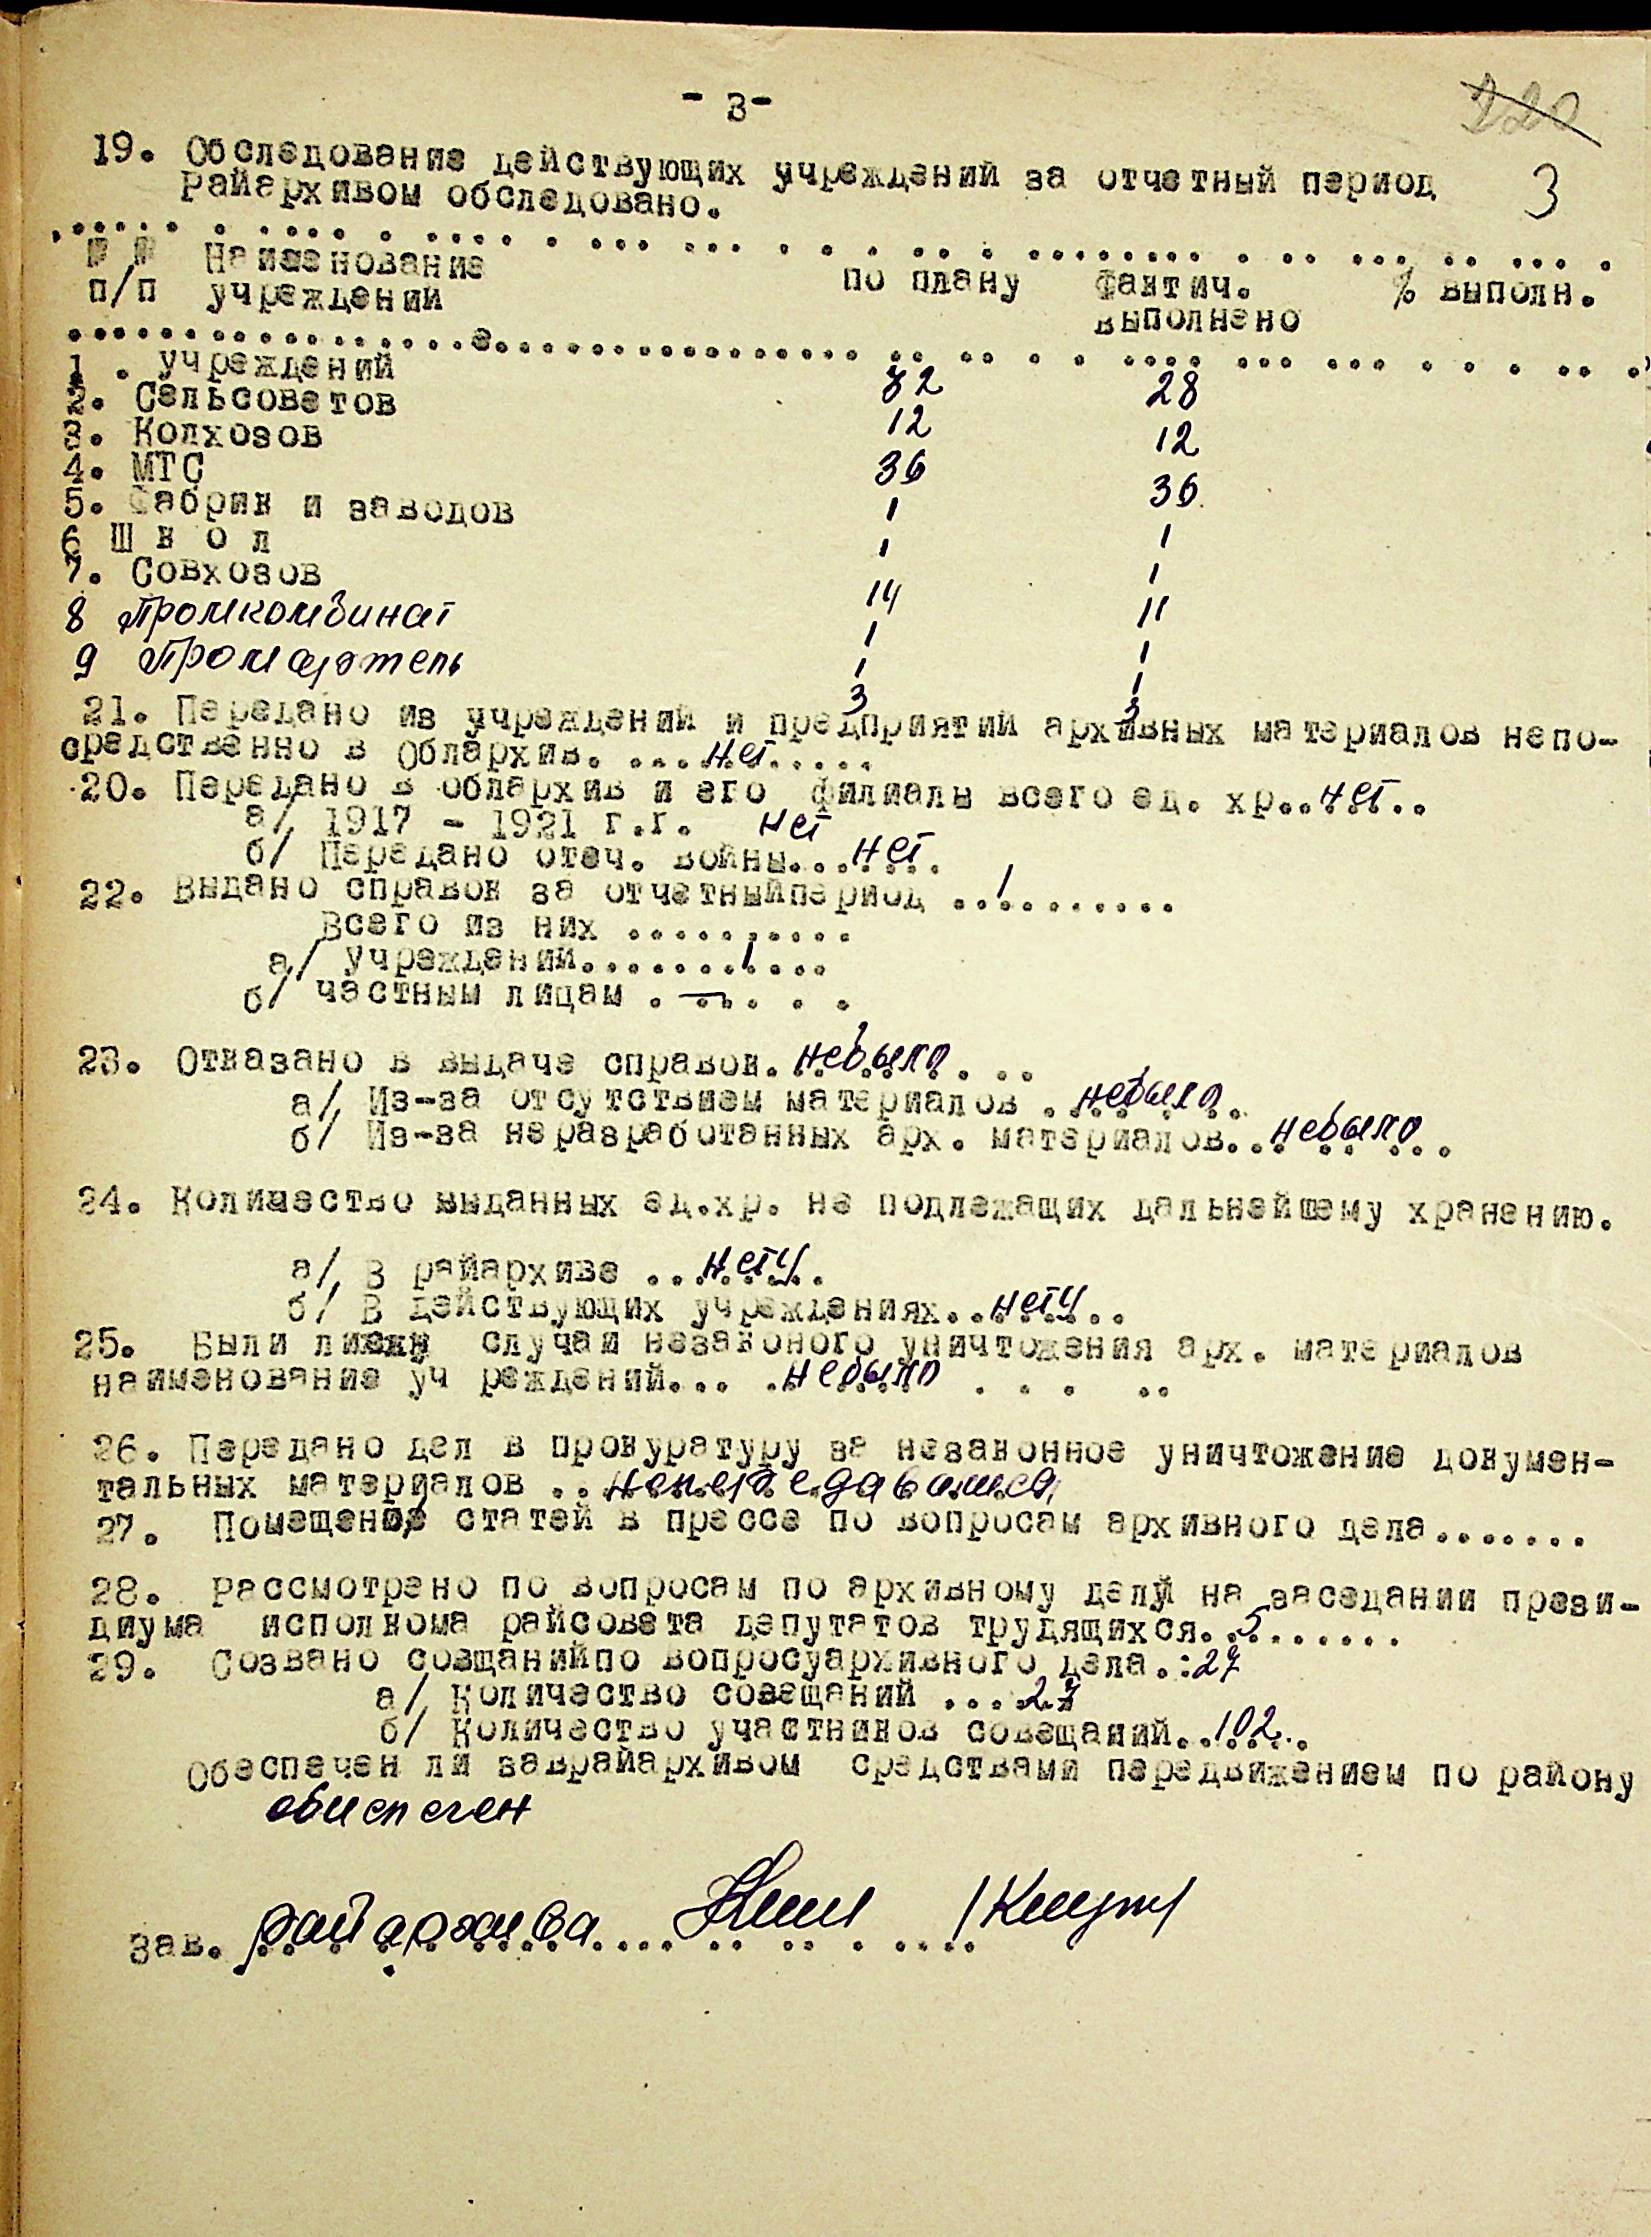 - 3-
220
3
19. Обследование действующих учреждений за отчетный период
Райархивом обследовано.
№ № Наименование по плану фактич. % выполн.
п/п учреждении выполнено
1 . учреждений 32 28
2. Сельсоветов 12 12
3. Колхозов 36 36
4. МТС 1 1
5. Фабрик и заводов 1 1
6 Ш к о л 14 11
7. Совхозов 1 1
8 Промкомбинат 1 1
9 Промартель 3 3
21. Передано из учреждений и предприятий архивных материалов непо-
средственно в Облархив. ....нет.....
20. Передано в облархив и его филиалы всего ед. хр..нет..
а/ 1917 - 1921 г.г. нет
б/ Передано отеч. войны...нет.
22. Выдано справок за отчетныйпериод ..1........
Всего из них ..........
а/ учреждений.......1...
б/ частным лицам . — . . .
23. Отказано в выдаче справок. небыло. ..
а/ Из-за отсутствием материалов ..небыло..
б/ Из-за неразработанных арх. материалов...небыло..
24. Количество выданных ед.хр. не подлежащих дальнейшему хранению.
а/ В райархиве ...нету.
б/ В действующих учреждениях..нету..
25. Были ли случаи незаконого уничтожения арх. материалов
наименование уч реждений... .небыло . . . ..
26. Передано дел в прокуратуру за незаконное уничтожение докумен-
тальных материалов ..непередавались
27. Помещено статей в прессе по вопросам архивного дела.......
28. Рассмотрено по вопросам по архивному делу на заседании прези-
диума исполкома райсовета депутатов трудящихся..5.......
29. Созвано совщанийпо вопросуархивного дела.:27
а/ Количество совещаний ....27
б/ Количество участников совещаний..102..
Обеспечен ли заврайархивом средствами передвижением по району
обиспечен
Зав. райархива